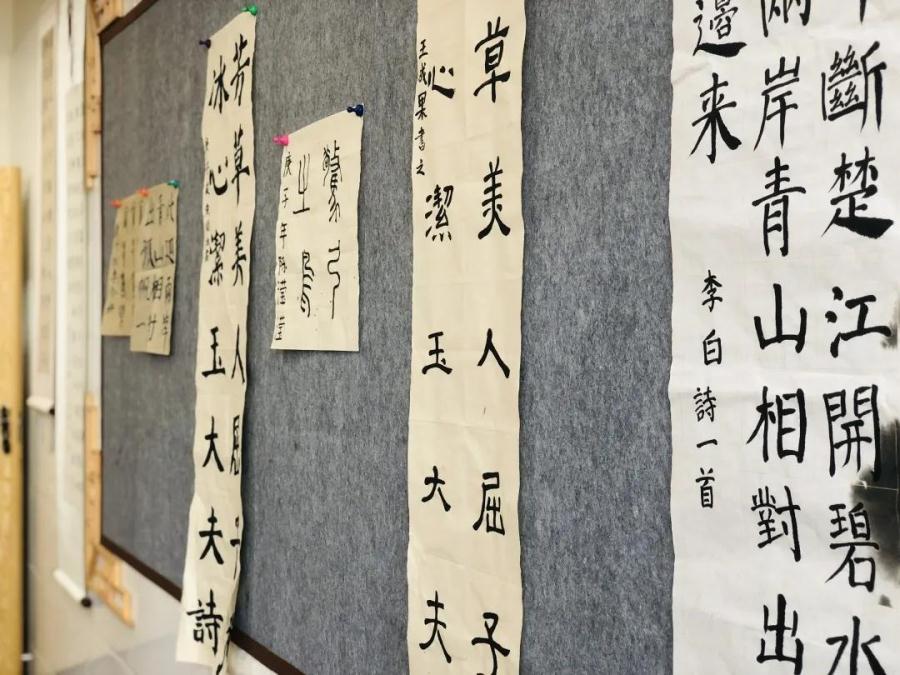 斷楚江開碧水
兩岸青山相對出
邊来
李白詩一首
草美人屈子
心潔玉大夫
王成果書之
驚弓
之鳥
庚子年陈滢莹
芳草美人屈子
冰心潔玉大夫詩